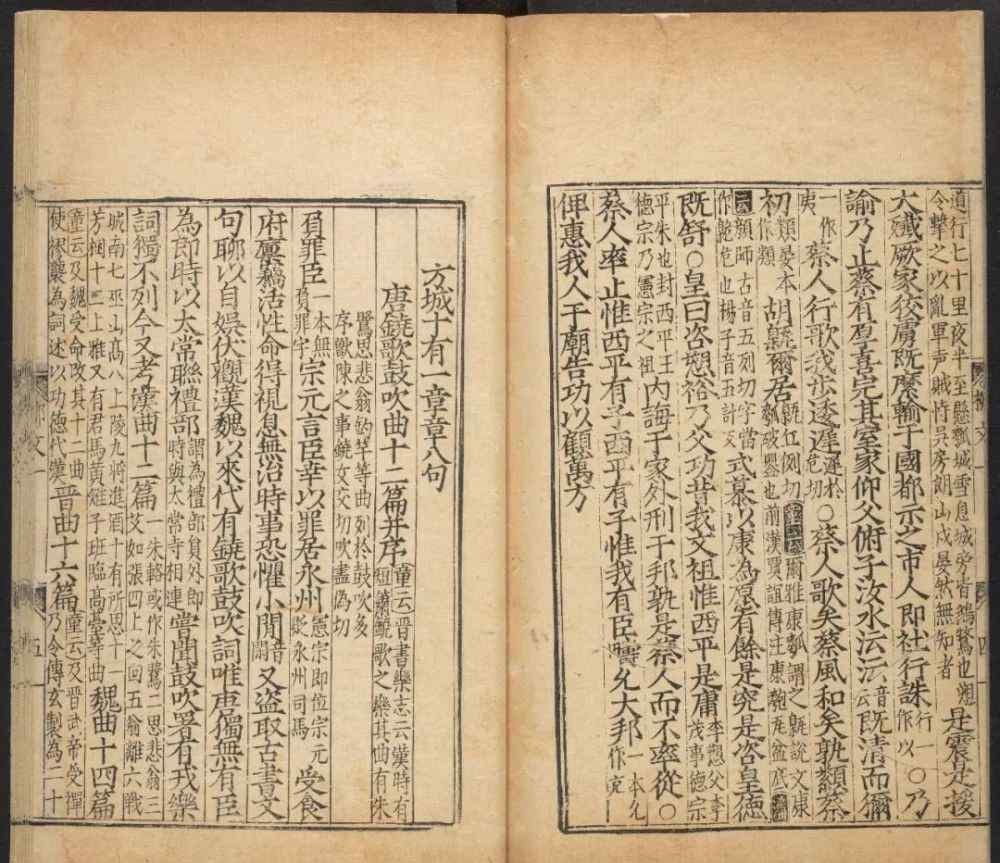 道行七十里夜半至懸瓠城雪息城旁皆鵝鶩也愬令擊之以亂軍声賊恃吳房朗山戍晏然無知者是震是拔
大殲厥家狡虜既縻輸于國都示之市人即社行誅行一作以○乃
諭乃止蔡有厚喜完其室家仰父俯子汝水沄沄音云既清而彌
一作夷蔡人行歌我步逶遲逶於危切○蔡人歌矣蔡風和矣孰類蔡
初類晏本作纇胡甈爾居甈丘例切爾雅康瓠謂之甈說文康瓠破罌也前漢賈誼傳注康瓠瓦盆底
顏師古音五列切字當作臲危也楊子音五計反式慕以康為愿有餘是究是咨皇德
既舒○皇曰咨愬裕乃父功昔我文祖惟西平是庸李愬父李茂事德宗
平朱泚封西平王德宗乃憲宗之祖內誨于家外刑于邦孰是蔡人而不率從○
蔡人率止惟西平有子西平有子惟我有臣疇允大邦一本允作克
俾惠我人于廟告功以顧萬方
方城十有一章章八句
唐鐃歌鼓吹曲十二篇并序童云晋書樂志云漢時有短簫鐃歌之樂其曲有朱
鷺思悲翁釣竿等曲列於鼓吹多序戰陳之事鐃女交切吹盡偽切
負罪臣一本無負罪字宗元言臣幸以罪居永州憲宗即位宗元貶永州司馬受食
府廩竊活性命得視息無治時事恐懼小閒音閑又盜取古書文
句聊以自娛伏觀漢魏以來代有鐃歌鼓吹詞唯唐獨無有臣
為郎時以太常聯禮部謂為禮部員外郎時與太常寺相連嘗聞鼓吹署有戎樂
詞獨不列今又考漢曲十二篇一朱鷺或作朱鷺二思悲翁三艾如張四上之回五翁離六戰
城南七巫山高八上陵九將進酒十有所思十一芳樹十二上雅又有君馬黃雉子班臨高臺等曲魏曲十四篇
童云及魏受命改其十二曲使繆襲為詞述以功德代漢晋曲十六篇童云及晋武帝受禪乃令傅玄製為二十